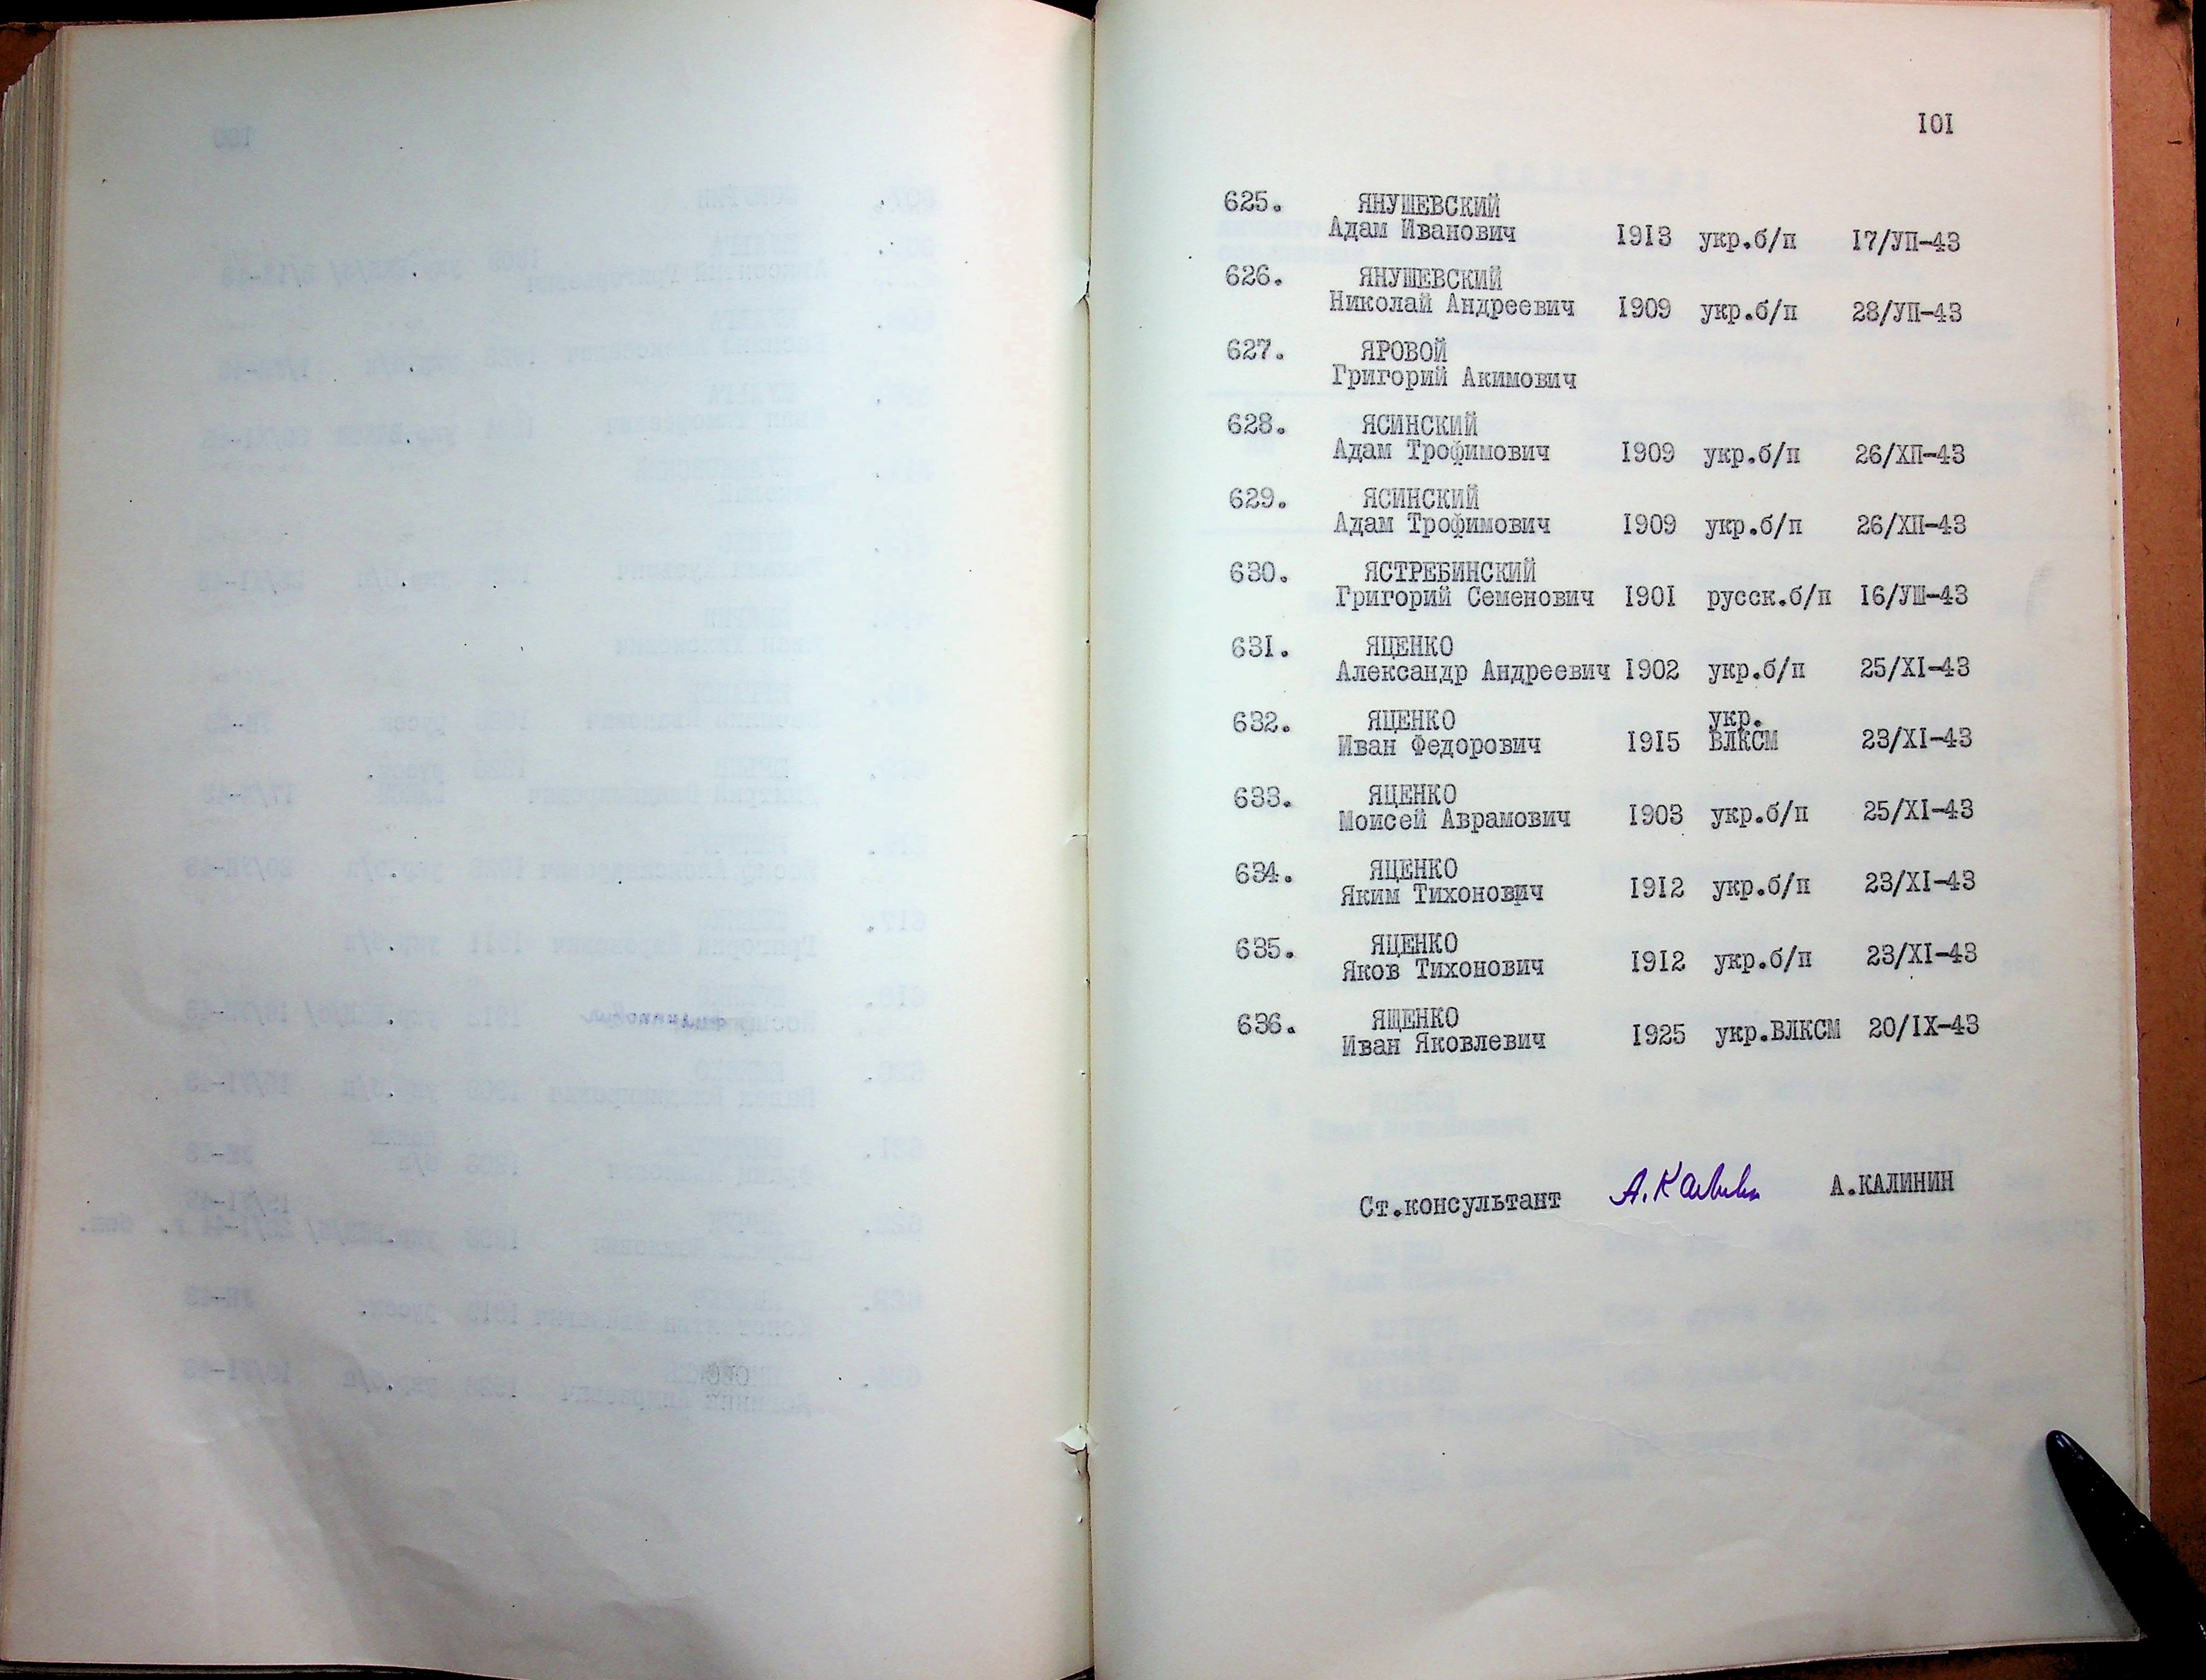 101
625. ЯНУШЕВСКИЙ
Адам Иванович 1913 укр.б/п 17/УП-43
626. ЯНУШЕВСКИЙ
Николай Андреевич 1909 укр.б/п 28/УП-43
627. ЯРОВОЙ
Григорий Акимович
628. ЯСИНСКИЙ
Адам Трофимович 1909 укр.б/п 26/ХП-43
629. ЯСИНСКИЙ
Адам Трофимович 1909 укр.б/п 26/ХП-43
630. ЯСТРЕБИНСКИЙ
Григорий Семенович 1901 русск.б/п 16/УШ-43
631. ЯЦЕНКО
Александр Андреевич 1902 укр.б/п 25/XI-43
632. ЯЦЕНКО укр.
Иван Федорович 1915 ВЛКСМ 23/XI-43
633. ЯЦЕНКО
Моисей Аврамович 1903 укр.б/п 25/XI-43
634. ЯЦЕНКО
Яким Тихонович 1912 укр.б/п 23/XI-43
635. ЯЦЕНКО
Яков Тихонович 1912 укр.б/п 23/XI-43
636. ЯЩЕНКО
Иван Яковлевич 1925 укр.ВЛКСМ 20/IX-43
Ст.консультант А.Калинин А.КАЛИНИН